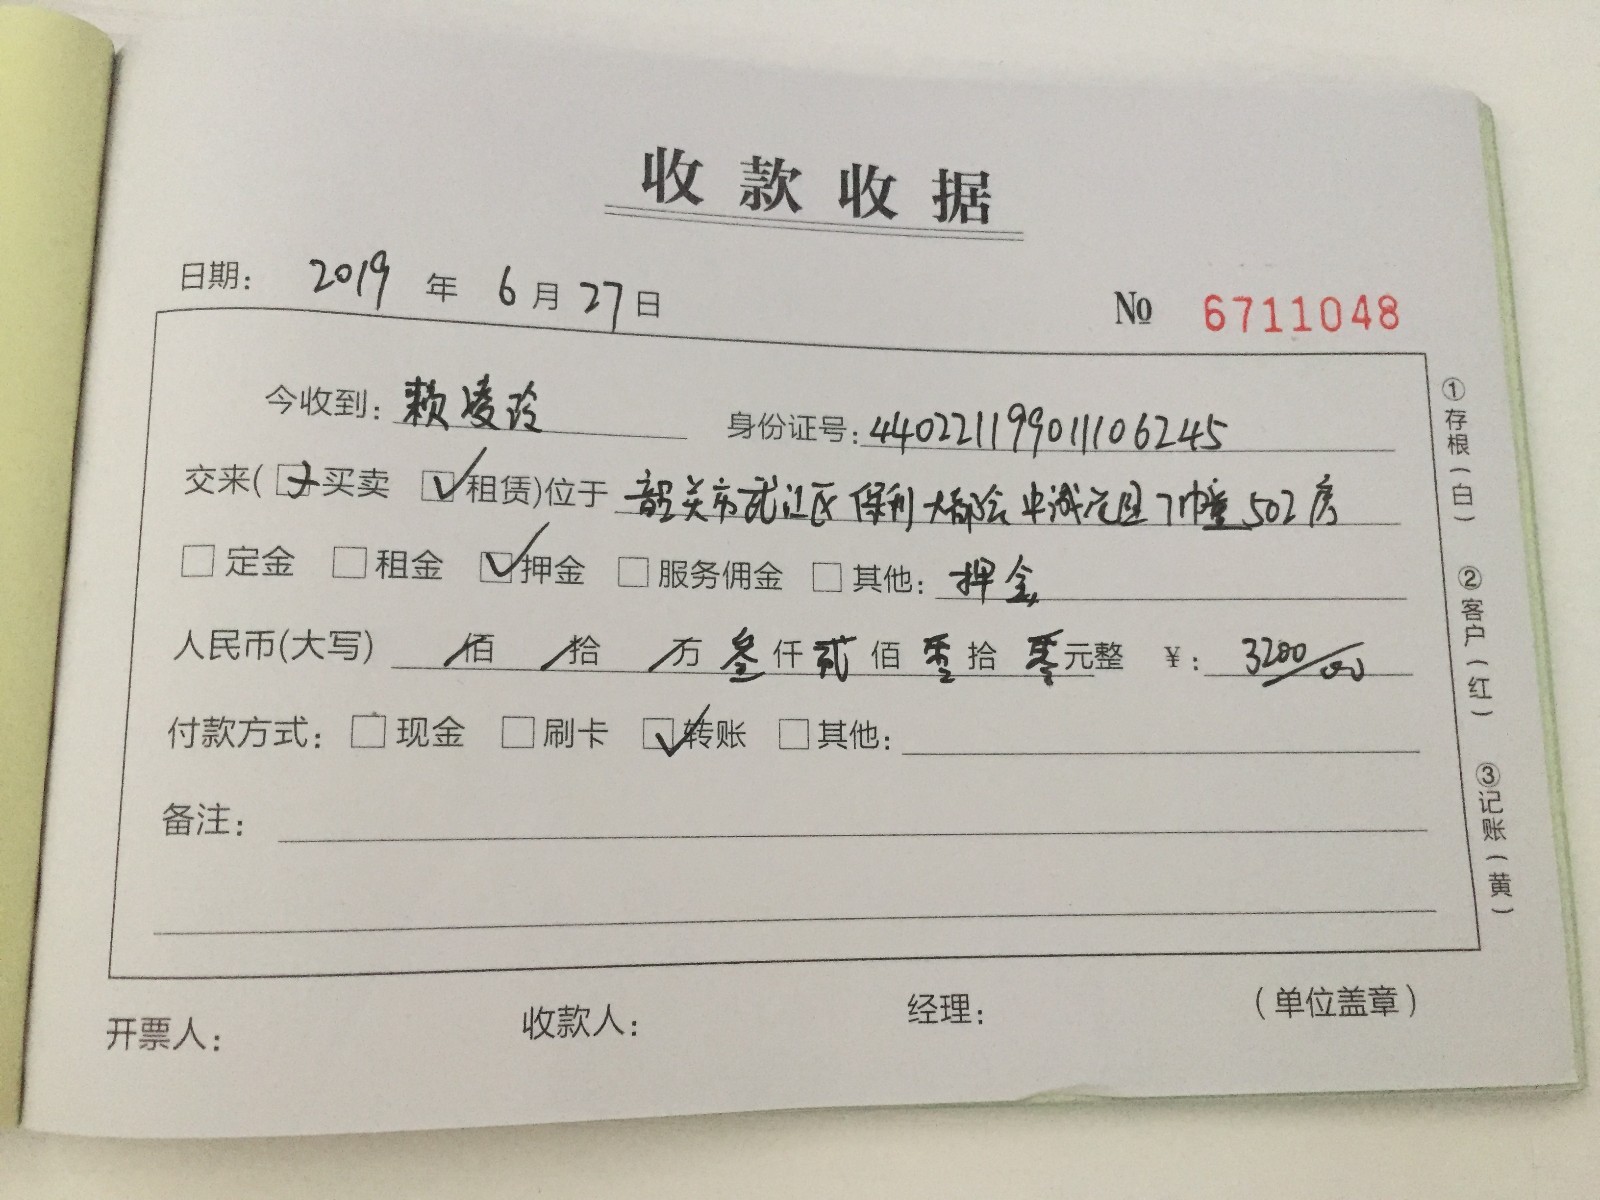 收款收据
日期： 2019 年 6 月 27 日 № 6711048
今收到：赖凌玲 身份证号：440221199011106245
交来(□买卖 ☑租赁)位于 韶关市武江区保利大都会 7幢 502房
□定金 □租金 ☑押金 □服务佣金 □其他：押金
人民币(大写) /佰 /拾 /万 叁仟贰佰零拾零元整 ¥：3200/00
付款方式：□现金 □刷卡 ☑转账 □其他：
备注：
开票人： 收款人： 经理： （单位盖章）
①存根(白) ②客户(红) ③记账(黄)